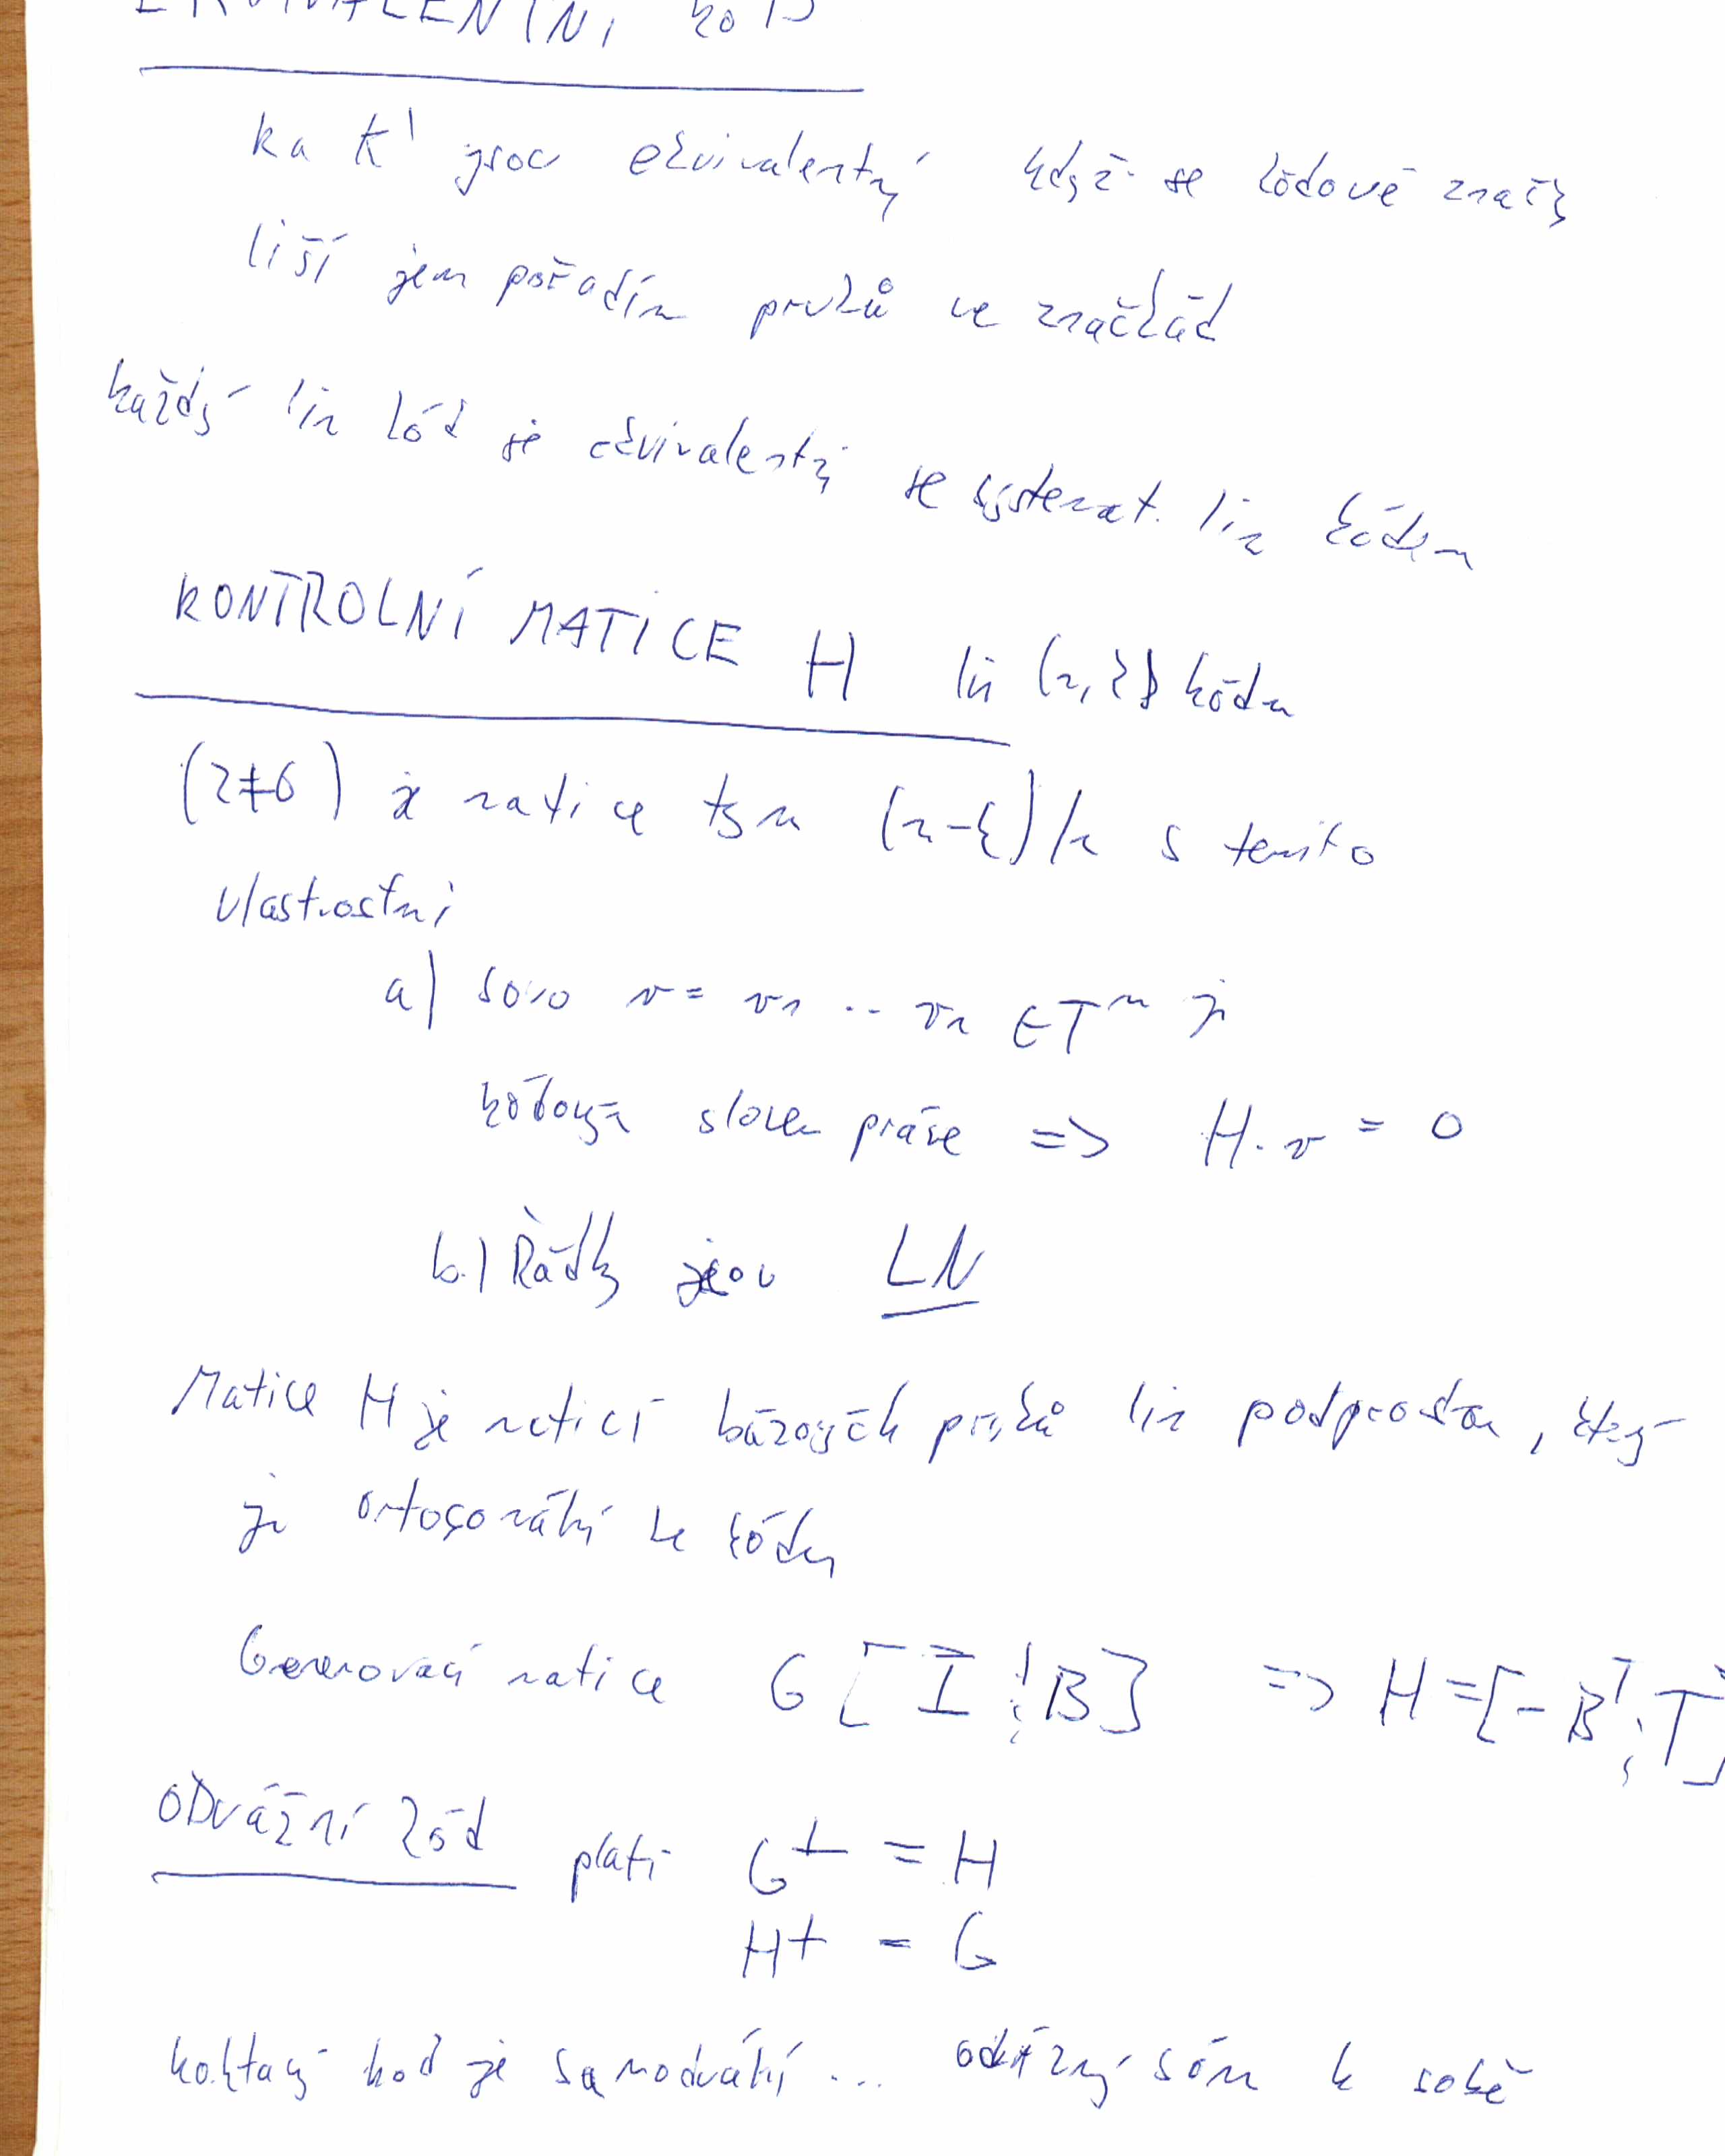 EKVIVALENTNÍ KÓD
k a k' jsou ekvivalentní když se kódové značky
liší jen pořadím prvků ve značkách
každý lin kód je ekvivalentní se systemat. lin kódem
KONTROLNÍ MATICE H lin (n, k) kódu
(k≠0) je matice typu (n-k)/n s temito
vlastnostmi
a) sovo v = v1 .. vn ∈ T^n je
kódovým slovem práve => H. v = 0
b.) Řádky jsou LN
Matice H je maticí bázových prvků lin podprostoru, který
je ortogonální ke kódu
Generovací matice G [ I ¦ B ] => H = [- B^T ¦ I ]
plati G⊥ = H
H⊥ = G
kód je samoduální ... sám k sobě